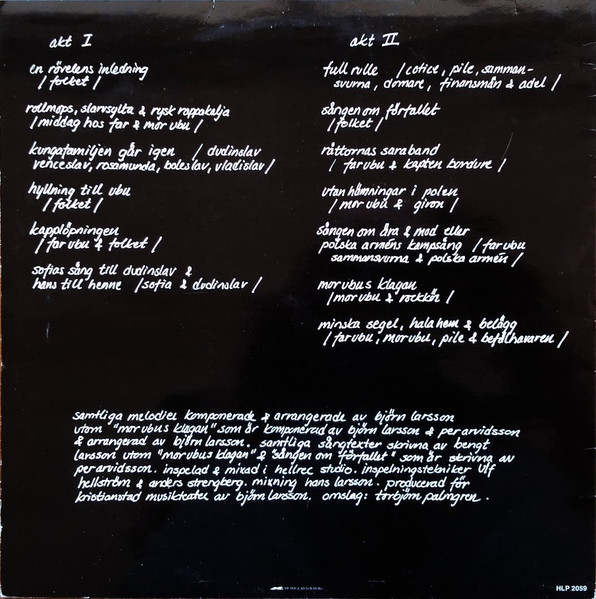 akt I
en rövelens inledning
/ folket /
rollmops, slarvsylta & rysk rappakalja
/ middag hos far & mor ubu /
kungafamiljen går igen / dudinslav
venceslav, rosamunda, boleslav, vladislav /
hyllning till ubu
/ folket /
kapplöpningen
/ far ubu & folket /
sofias sång till dudinslav &
hans till henne / sofia & dudinslav /
akt II
full rulle / cotice, pile, samman-
svurna, domare, finansmän & adel /
sången om förfallet
/ folket /
råttornas saraband
/ far ubu & kapten bordure /
utan hämningar i polen
/ mor ubu & giron /
sången om ära & mod eller
polska arméns kampsång / far ubu
sammansvurna & polska armén /
mor ubus klagan
/ mor ubu & rockkör /
minska segel, hala hem & belägg
/ far ubu, mor ubu, pile & befälhavaren /
samtliga melodier komponerade & arrangerade av björn larsson
utom "mor ubus klagan" som är komponerad av björn larsson & per arvidsson
& arrangerad av björn larsson. samtliga sångtexter skrivna av bengt
larsson utom "mor ubus klagan" & "sången om förfallet" som är skrivna av
per arvidsson. inspelad & mixad i hellrec studio. inspelningstekniker ulf
hellström & anders strengberg. mixning hans larsson. producerad för
kristianstad musikteater av björn larsson. omslag: torbjörn palmgren.
HLP 2059